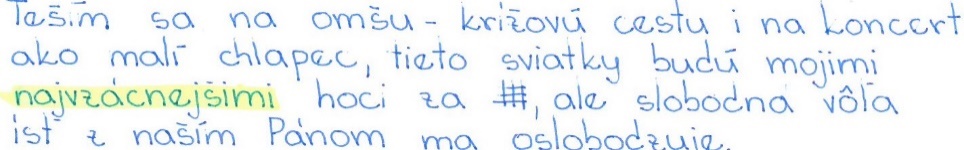 Teším sa na omšu - krížovú cestu i na koncert
ako malí chlapec, tieto sviatky budú mojimi
najvzácnejšimi hoci za #, ale slobodná vôľa
ísť z naším Pánom ma oslobodzuje.